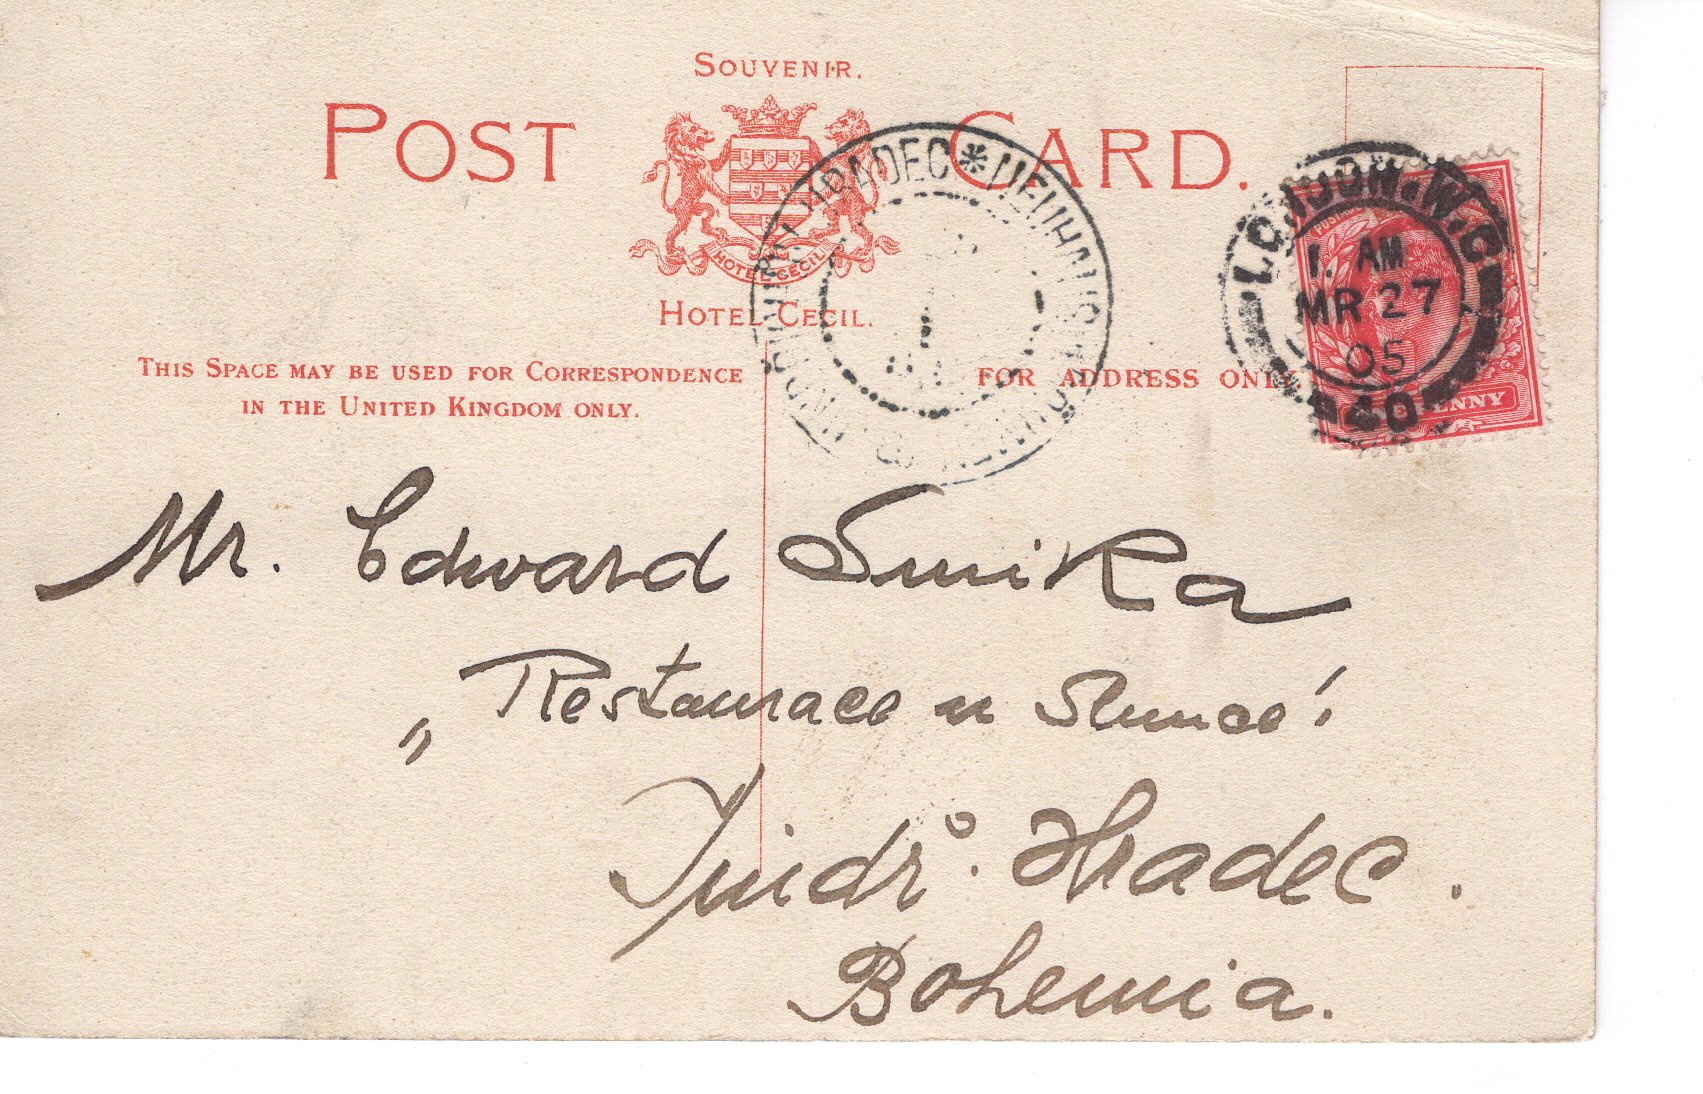 SOUVENIR.
POST CARD.
HOTEL CECIL
HOTEL CECIL.
THIS SPACE MAY BE USED FOR CORRESPONDENCE
IN THE UNITED KINGDOM ONLY.
FOR ADDRESS ONLY.
HRADEC * NEUHAUS
LONDON.W.C
1. AM
MR 27
05
40
PENNY
Mr. Edward Smika
„Restaurace u Slunce‘
Jindř. Hradec.
Bohemia.